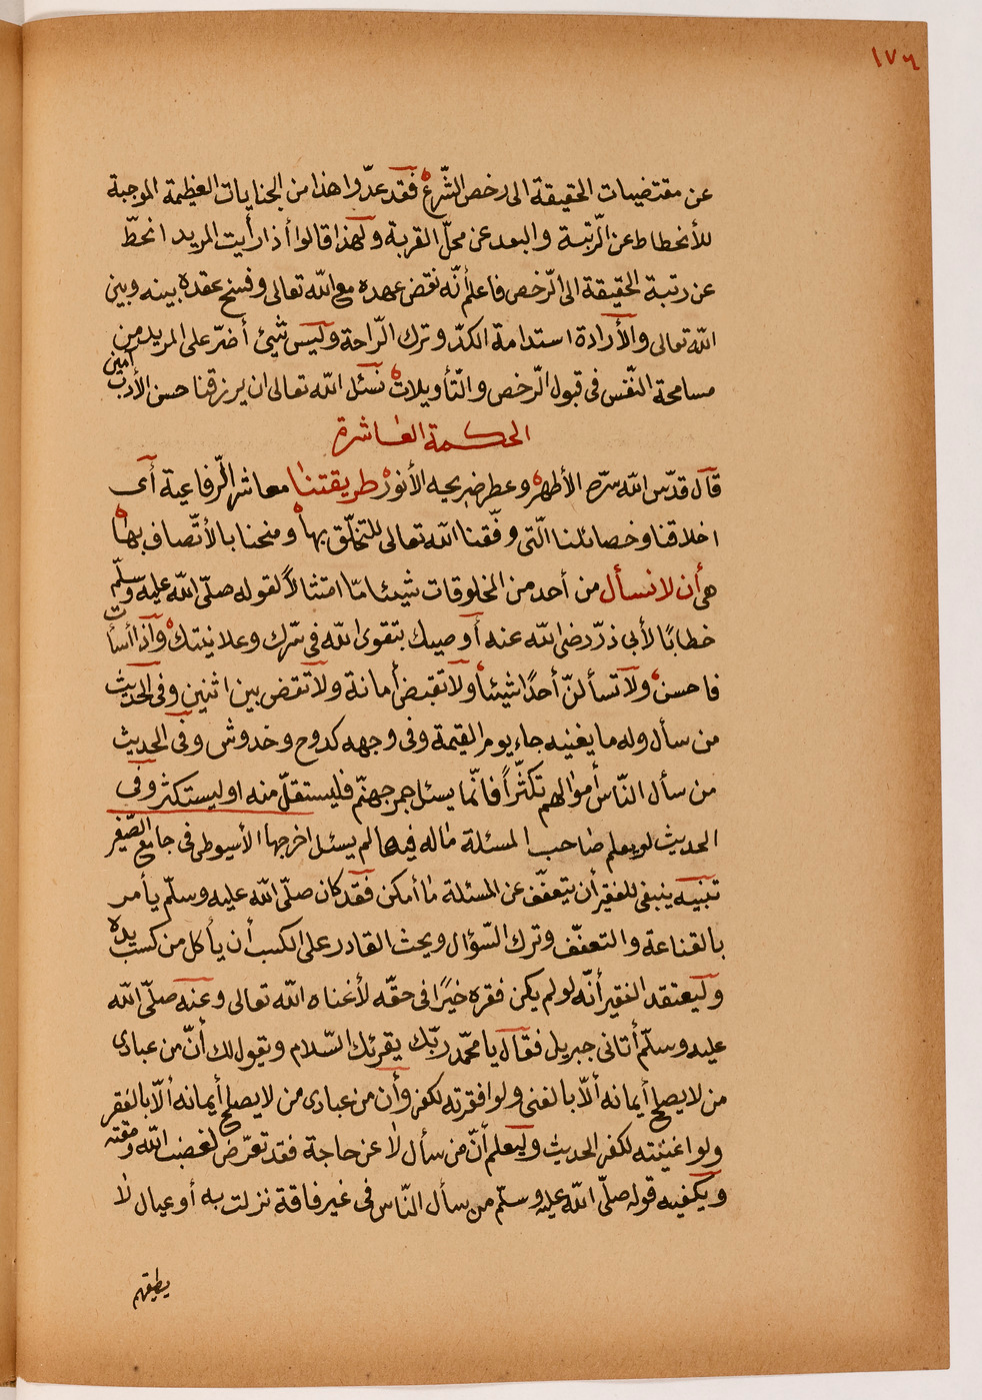 ١٧٦
عن مقتضيات الحقيقة الى رخص الشّرع فقد عدّوا هذا من الجنايات العظيمة الموجبة
للأنحطاط عن الرّتبة والبعد عن محلّ القربة ولهذا قالوا أذا رأيت المريد انحطّ
عن رتبة الحقيقة الى الرّخص فاعلم أنّه نقض عهده مع اللّه تعالى وفسخ عقده بينه وبين
اللّه تعالى والأرادة استدامة الكدّ وترك الرّاحة وليس شيئ أضرّ على المريد من
مسامحة النّفس فى قبول الرّخص والتّأويلات نسئل اللّه تعالى ان يرزقنا حسن الأدب امين
الحكمة العاشرة
قال قدّس اللّه سرّه الأطهر وعطر ضريحه الأنور طريقتنا معاشر الرّفاعية أى
اخلاقنا وخصائلنا الّتى وفّقنا اللّه تعالى للتخلّق بها ومنحنا بالأتّصاف بها
هى أن لا نسأل من أحد من المخلوقات شيئا مّا امتثالاً لقوله صلّى اللّه عليه وسلّم
خطابًا لأبى ذرّ رضى اللّه عنه أوصيك بتقوى اللّه فى سّرك وعلانيتك وأذا أسأت
فاحسن ولا تسألنّ أحدًا شيئاً ولا تقبض أمانة ولا تقض بين اثنين وفى الحديث
من سأل وله ما يغنيه جاء يوم القيمة وفى وجهه كدوح وخدوش وفى الحديث
من سأل النّاس أموالهم تكثّراً فانّما يسئل جمر جهنّم فليستقلّ منه او ليستكثر وفى
الحديث لو يعلم صاحب المسئلة ماله فيها لم يسئل اخرجها الأسيوطى فى جامع الصّغير
تنبيه ينبغى للفقير أن يتعفّف عن المسئلة ما أمكن فقد كان صلّى اللّه عليه وسلّم يأمر
بالقناعة والتعفّف وترك السّؤال ويحث القادر على الكسب أن يأكل من كسب يده
وليعتقد الفقير أنّه لو لم يكن فقره خيرًا فى حقّه لأغناه اللّه تعالى وعنه صلّى اللّه
عليه وسلّم أتانى جبريل فقال يا محمّد ربّك يقرئك السّلام ويقول لك أنّ من عبادى
من لا يصلح أيمانه ألّا بالغنى ولو افقرته لكفر وأن من عبادى من لا يصلح أيمانه ألّا بالفقر
ولو اغنيته لكفر الحديث وليعلم أنّ من سأل لا عن حاجة فقد تعرّض لغضب اللّه ومقته
ويكفيه قوله صلّى اللّه عليه وسلّم من سأل النّاس فى غير فاقة نزلت به أو عيال لا
يطيقهم